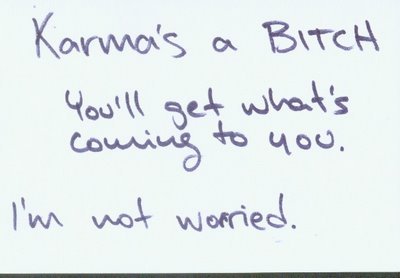 Karma's a BITCH
You'll get what's
coming to you.
I'm not worried.